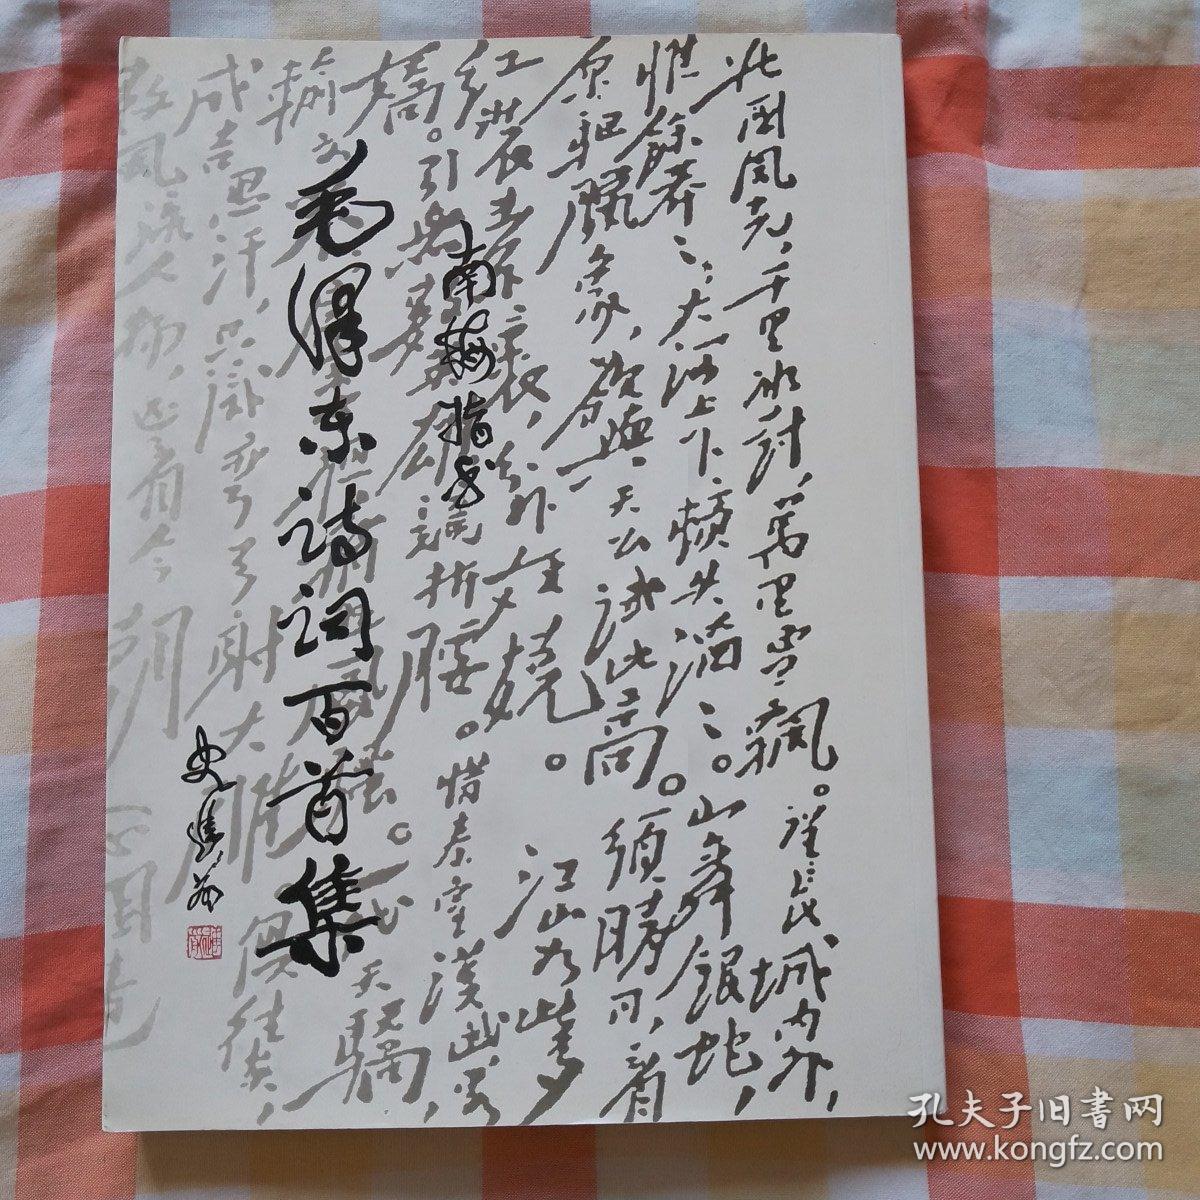 北国风光，千里冰封，萬里雪飄。望長城内外，
惟餘莽〻；大河上下，頓失滔〻。山舞銀蛇，
原驰臘象，欲與天公试比高。須晴日，看
红装素裹，分外妖娆。江山如此多
嬌。引無數英雄競折腰。惜秦皇漢武，略
輸文采，唐宗宋祖，稍遜風騷。一代天驕，
成吉思汗，只識彎弓射大雕。俱往矣，
数风流人物，还看今朝 沁园春
南梅指书
毛泽东诗词百首集
史進前
孔夫子旧書网
www.kongfz.com